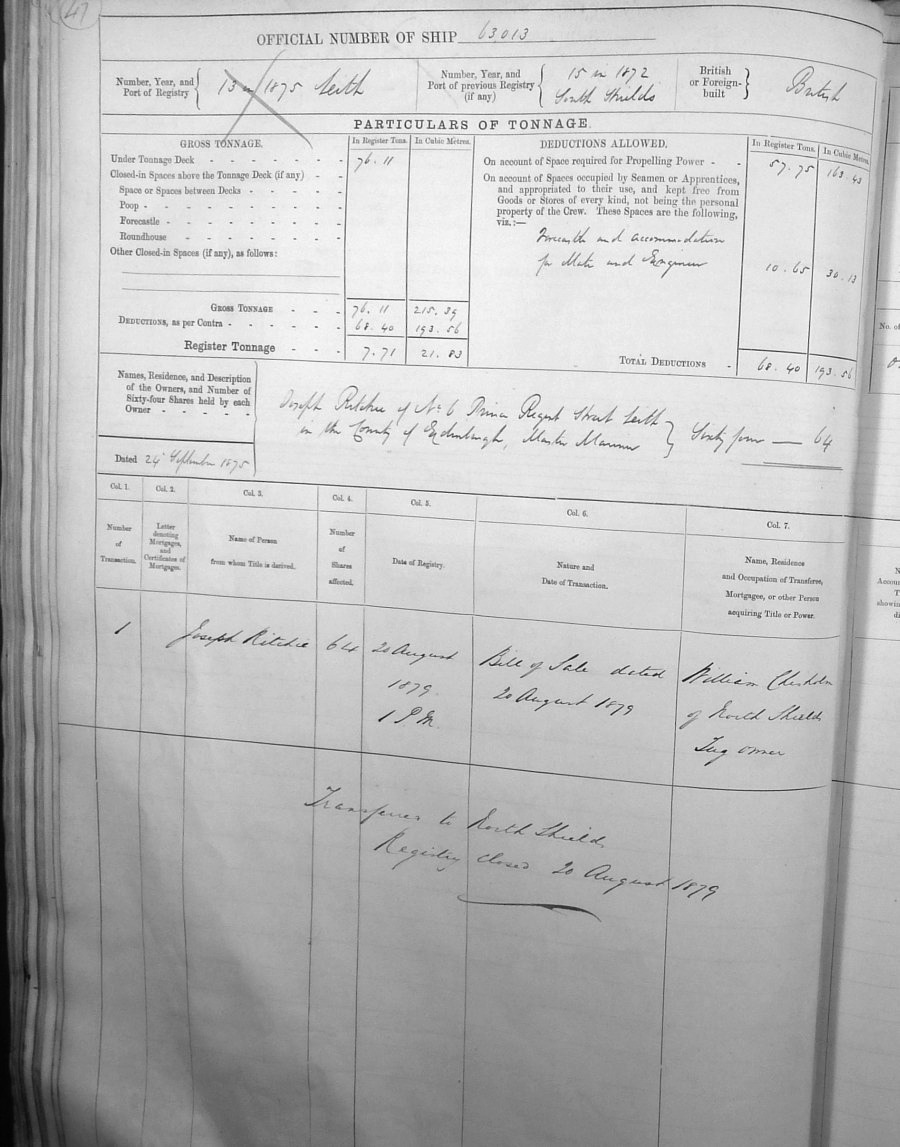 47
OFFICIAL NUMBER OF SHIP 63013
Number, Year, and
Port of Registry
13 in 1875 Leith
Number, Year, and
Port of previous Registry
(if any)
15 in 1872
South Shields
British
or Foreign-
built
British
PARTICULARS OF TONNAGE.
GROSS TONNAGE. In Register Tons. In Cubic Metres.
Under Tonnage Deck - - - - - - - 76.11
Closed-in Spaces above the Tonnage Deck (if any) - -
Space or Spaces between Decks - - - - -
Poop - - - - - - - - -
Forecastle - - - - - - - -
Roundhouse - - - - - - -
Other Closed-in Spaces (if any), as follows:
GROSS TONNAGE - - - 76.11 215.39
DEDUCTIONS, as per Contra - - - - - 68.40 193.56
Register Tonnage - - - 7.71 21.83
DEDUCTIONS ALLOWED. In Register Tons. In Cubic Metres.
On account of Space required for Propelling Power - - 57.75 163.43
On account of Spaces occupied by Seamen or Apprentices,
and appropriated to their use, and kept free from
Goods or Stores of every kind, not being the personal
property of the Crew. These Spaces are the following,
viz.:—
Forecastle and accommodation
for Mate and Engineer 10.65 30.13
TOTAL DEDUCTIONS - 68.40 193.56
Names, Residence, and Description
of the Owners, and Number of
Sixty-four Shares held by each
Owner - - - - -
Dated 24 September 1875
Joseph Ritchie of No 6 Prince Regent Street Leith
in the County of Edinburgh, Master Mariner
Sixty four — 64
Col. 1. Col. 2. Col. 3. Col. 4. Col. 5. Col. 6. Col. 7.
Number
of
Transaction.
Letter
denoting
Mortgages,
and
Certificates of
Mortgages.
Name of Person
from whom Title is derived.
Number
of
Shares
affected.
Date of Registry.
Nature and
Date of Transaction.
Name, Residence
and Occupation of Transferee,
Mortgagee, or other Person
acquiring Title or Power.
1 Joseph Ritchie 64
20 August
1879
1 P.M.
Bill of Sale dated
20 August 1879
William Chisholm
of North Shields
Tug owner
Transferred to North Shields
Registry closed 20 August 1879
No. of